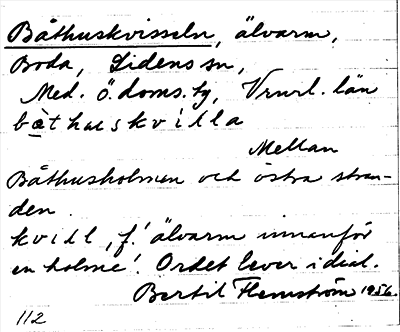 Båthuskvisseln, älvarm,
Boda, Lidens sn,
Med. ö. doms. tg, Vrnrl. län
båthuskvilla
Mellan
Båthusholmen och östra stran-
den.
kvill, f.' älvarm innanför
en holme'. Ordet lever i dial.
Bertil Flemström 1956.
112